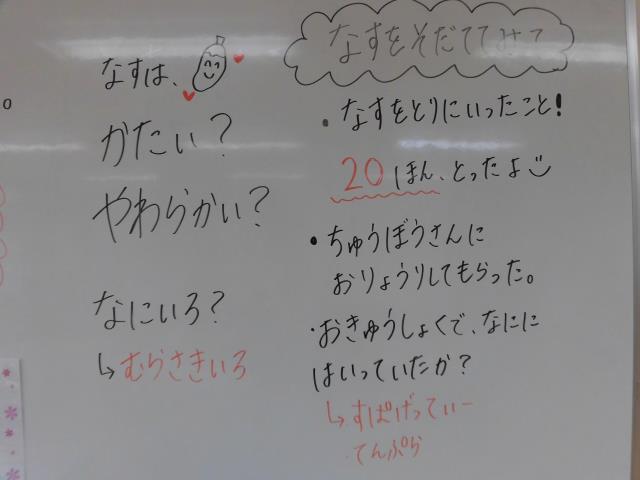 なすは、
かたい?
やわらかい?
なにいろ?
↳むらさきいろ
なすをそだててみて
・なすをとりにいったこと!
20ほん、とったよ
・ちゅうぼうさんに
おりょうりしてもらった。
・おきゅうしょくで、なにに
はいっていたか?
↳すぱげってぃー
・てんぷら